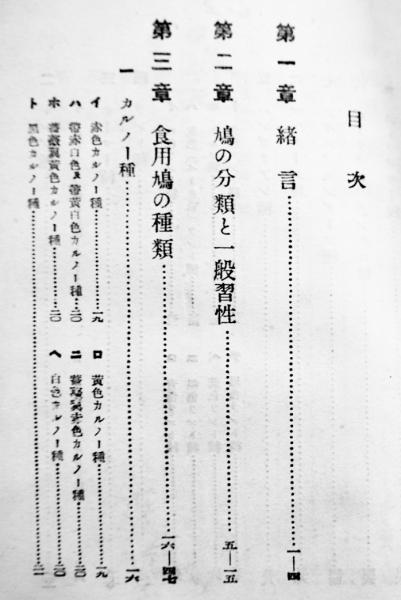 目次
第一章 緒言……一—四
第二章 鳩の分類と一般習性……五—一五
第三章 食用鳩の種類……一六—四七
一 カルノー種……一六
イ 赤色カルノー種……一九
ロ 黄色カルノー種……一九
ハ 帶赤白色及帶黄白色カルノー種……二〇
ニ 薔薇翼赤色カルノー種……二〇
ホ 薔薇翼黄色カルノー種……二〇
ヘ 白色カルノー種……二〇
ト 黒色カルノー種……二一